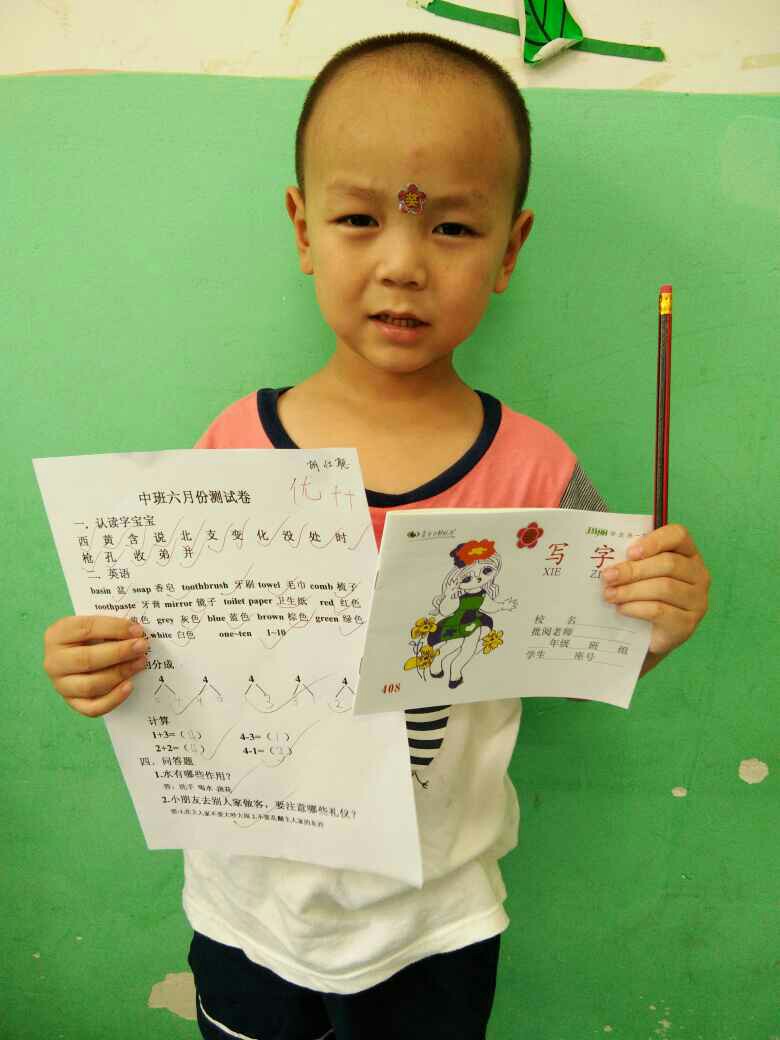 奖
中班六月份测试卷
优++
一．认读字宝宝
西 黄 含 说 北 支 变 化 没 处 时
枪 孔 收 弟 并
二．英语
basin 盆 soap 香皂 toothbrush 牙刷 towel 毛巾 comb 梳子
toothpaste 牙膏 mirror 镜子 toilet paper 卫生纸 red 红色
蓝色 grey 灰色 blue 蓝色 brown 棕色 green 绿色
white 白色 one~ten 1~10
的分成
4 4 4 4 4
计算
1+3=(4) 4-3=(1)
2+2=(4) 4-1=(3)
四．问答题
1.水有哪些作用？
答：洗手 喝水 浇花
2.小朋友去别人家做客，要注意哪些礼仪？
写 字
XIE ZI
校 名
批阅老师
年级 班 组
学生 座号
408